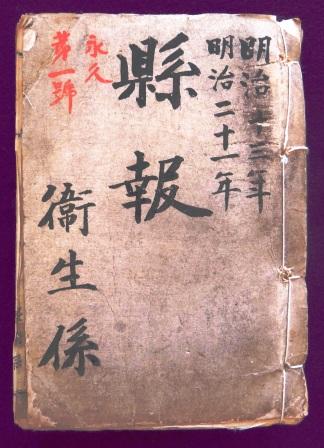 明治十三年
明治二十一年
縣報
永久
第一號
衞生係